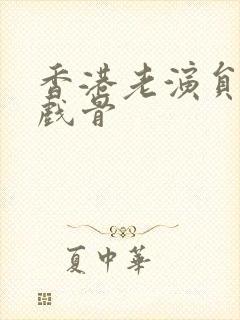 香港老演员
戏骨
夏中華